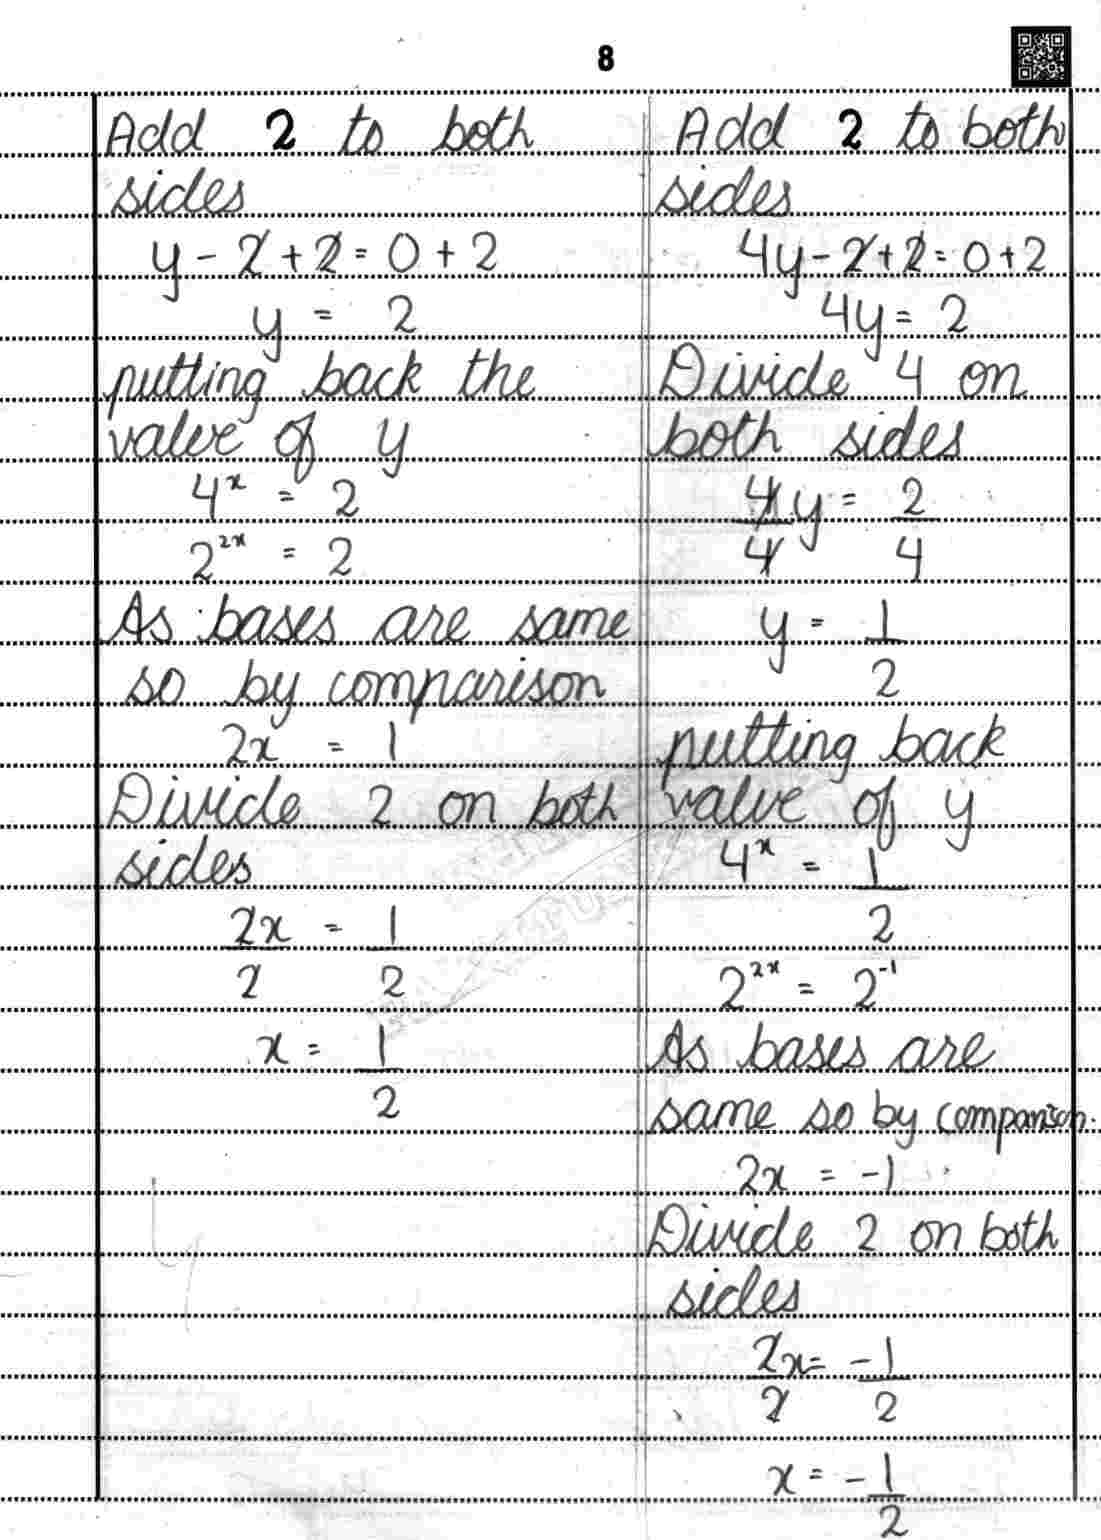 8
Add 2 to both
sides
y - 2 + 2 = 0 + 2
y = 2
putting back the
value of y
4^x = 2
2^2x = 2
As bases are same
so by comparison
2x = 1
Divide 2 on both
sides
2x/2 = 1/2
x = 1/2
Add 2 to both
sides
4y - 2 + 2 = 0 + 2
4y = 2
Divide 4 on
both sides
4/4 y = 2/4
y = 1/2
putting back
value of y
4^x = 1/2
2^2x = 2^-1
As bases are
same so by comparison.
2x = -1
Divide 2 on both
sides
2x/2 = -1/2
x = -1/2